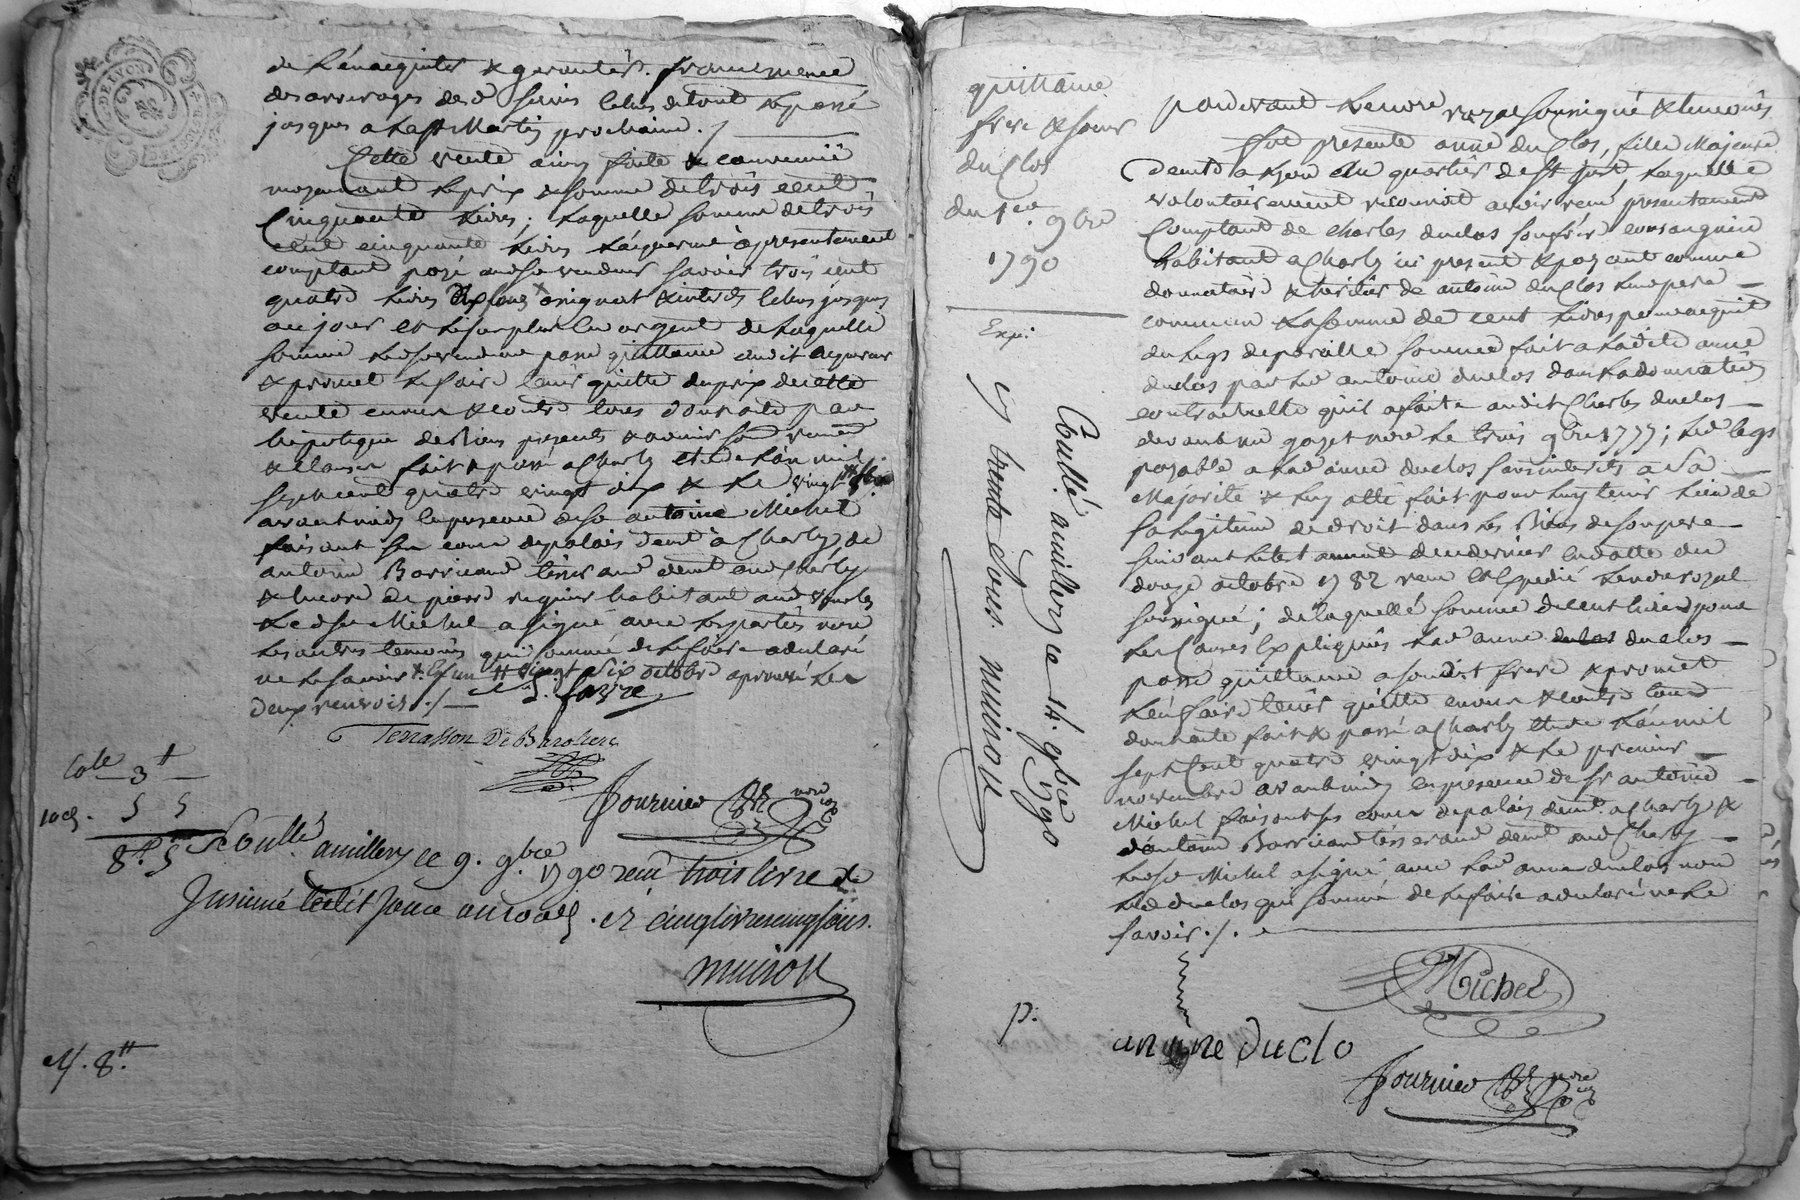 DE LYON
de l'enacquiter & garantir. franc meme
des arrerages desd. servis lods du tout le passé
jusques a la st Martin prochaine ./
Cette vente ainsy faite & convenue
moyenant le prix & somme de trois cent
Cinquante livres ; laquelle somme de trois
cent cinquante livres l'acquereur a presentement
comptant payé aud. sr vendeur savoir trois cent
quatre livres dix sous en assignat & interets jusques
au jour et le surplus en argent de laquelle
somme led. sr vendeur passe quittance audit acquereur
& promet le faire tenir quitte du prix de cette
vente envers & contre tous dont acte par
hipoteque de ses biens presents & avenir
& clauses fait & passé a Charly l'an mil
sept cent quatre vingt dix & le vingt
avant midy en presence de sr antoine Michel
faisant sa cour de palais demt a Charly & de
antoine Barricand tisserand demt aud. Charly
& encore de pierre habitant aud. Vourles
Led. sr Michel a signé avec les parties non
les autres temoins qui sommé de le faire a declaré
ne le savoir vingt six octobre aprouvé les
deux renvois ./
J. favre
Terrasson De Barolliere
Fournier nore
Cole 3 tt
10e. 5 5
8 tt 5
Controllé a millery ce 9. 9bre 1790 recu trois livre &
Insinué ledit Jour cinq livres cinq sous.
muiron
8 tt
quittance
frere & soeur
duClos
du 1er 9bre
1790
Expé.
Conllé a millery ce 14. 9bre 1790
trente sous. muiron
pardevant le notre royal soussigné & temoins
fut presente anne duClos, fille Majeure
demt a Lyon au quartier de st just, laquelle
volontairement reconnoit avoir recu presentement
Comptant de Charles duclos son frere consanguin
habitant a Charly ici present & payant comme
donnataire & heritier de antoine duClos leur pere
commun la somme de cent livres pour acquit
du legs de pareille somme fait a ladite anne
duclos par led. antoine duclos dans la donnation
contractuelle qu'il a faite audit Charles duclos
devant me gazet nore le trois 9bre 1777 ; led. legs
payable a lad. anne duclos sans interets a sa
Majorité & luy etté fait pour luy tenir lieu de
sa legitime de droit dans les Biens de son pere
suivant le testament de ce dernier en datte du
douze octobre 1782 recu & Expedié le nore royal
soussigné ; de laquelle somme de cent livres pour
les causes Expliqués lad. anne duclos
passe quittance a sondit frere & promet
l'en faire tenir quitte envers & contre tous
dont acte fait & passé a Charly l'an mil
sept Cent quatre vingt dix & le premier
novembre avant midy en presence de sr antoine
Michel faisant sa cour de palais demt a Charly &
d'antoine Barricand tisserand demt aud. Charly
led. sr Michel a signé avec lad. anne duclos non
led. duclos qui sommé de le faire a declaré ne le
savoir ./.
Michel
p.
annne duclo
Fournier nore